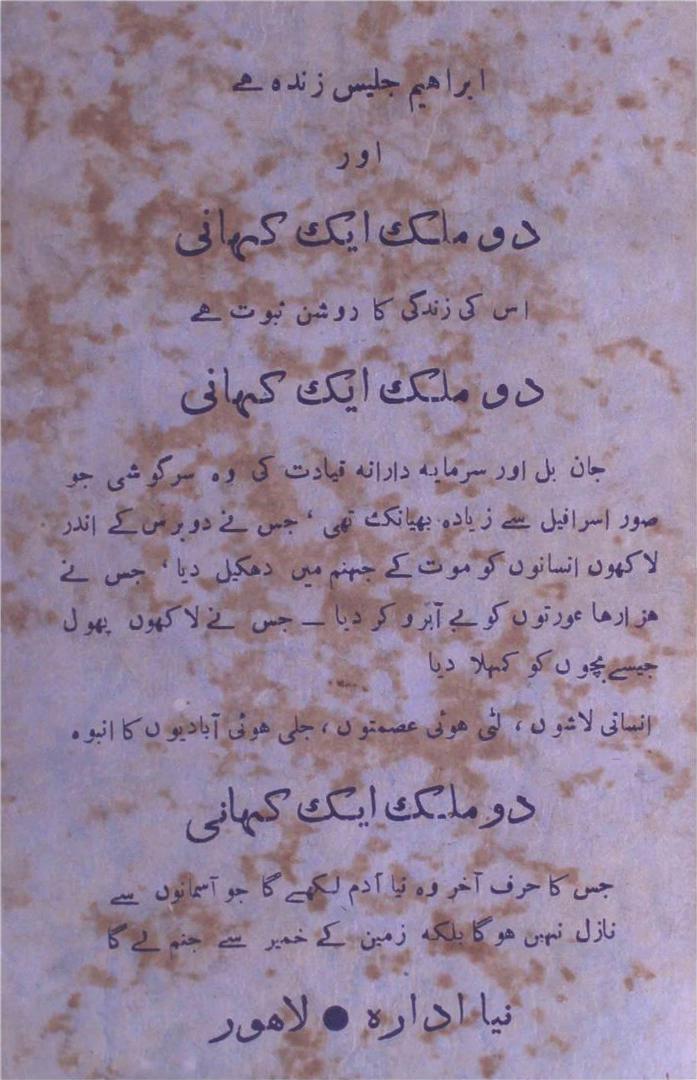 ابراهیم جلیس زنده هے
اور
دو ملک ایک کہانی
اس کی زندگی کا روشن ثبوت هے
دو ملک ایک کہانی
جان بل اور سرمایه دارانه قیادت کی وه سرگوشی جو
صور اسرافیل سے زیاده بھیانک تھی ، جس نے دو برس کے اندر
لاکھوں انسانوں کو موت کے جہنم میں دھکیل دیا ، جس نے
هزارها عورتوں کو بے آبرو کر دیا ــ جس نے لاکھوں پھول
جیسے بچوں کو کمہلا دیا
انسانی لاشوں ، لٹی هوئی عصمتوں ، جلی هوئی آبادیوں کا انبوه
دو ملک ایک کہانی
جس کا حرف آخر وه نیا آدم لکھے گا جو آسمانوں سے
نازل نہیں هو گا بلکه زمین کے خمیر سے جنم لے گا
نیا اداره ● لاهور